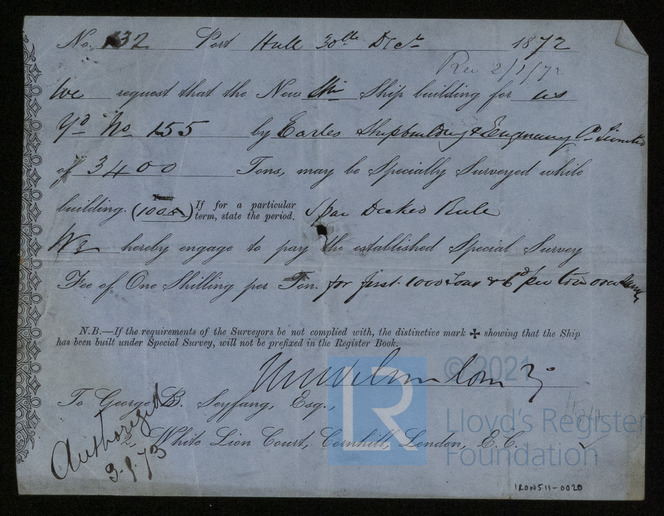 No. 132 Port Hull 30th Decr 1872
Rec 2/1/72
We request that the New Ship building for us
Yd No 155 by Earles Shipbuilding & Engineering Co Limited
of 3400 Tons, may be Specially Surveyed while
building. If for a particular term, state the period. Spar Decked Rule
We hereby engage to pay the established Special Survey
Fee of One Shilling per Ton. for first 1000 tons & 6d per ton over
N.B.—If the requirements of the Surveyors be not complied with, the distinctive mark ✠ showing that the Ship
has been built under Special Survey, will not be prefixed in the Register Book.
To George B. Seyfang, Esq.,
White Lion Court, Cornhill, London, E.C.
Authorized
© 2021
LR
Lloyd's Register
Foundation
IRON511-0020